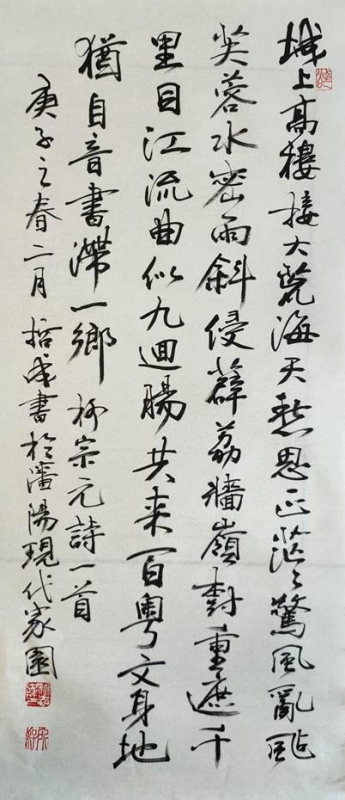 城上高樓接大荒海天愁思正茫々驚風亂颭
芙蓉水密雨斜侵薜荔牆嶺樹重遮千
里目江流曲似九迴腸共来百粤文身地
猶自音書滯一鄉 柳宗元詩一首
庚子之春二月 成書於瀋陽現代家園